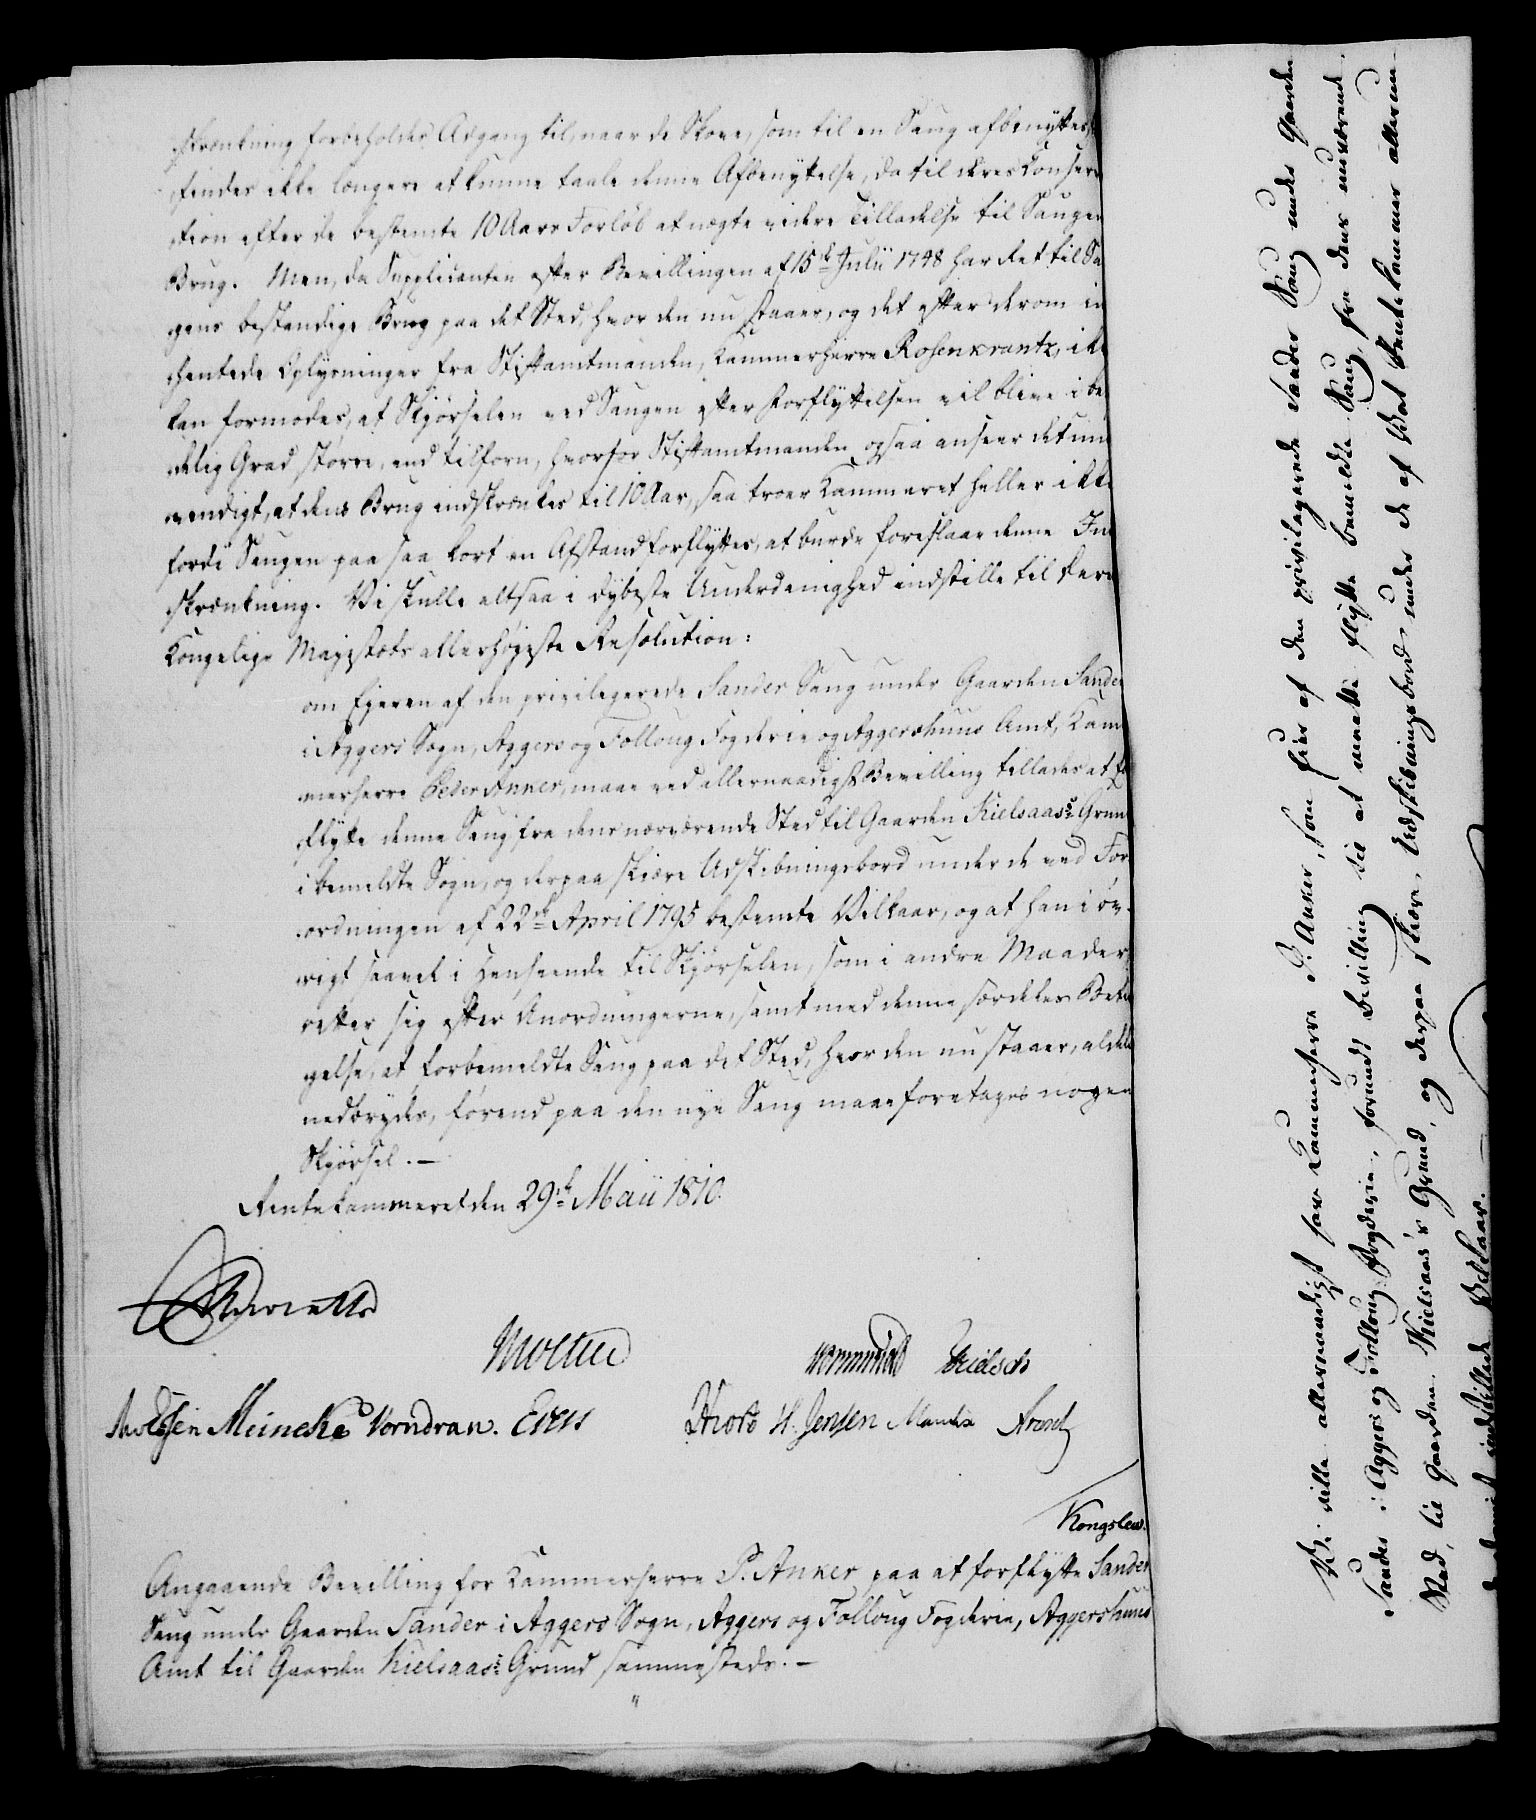 skrænkning forbeholdes Adgang til, naar de Skove, som til en Saug afbenyttes,
findes ikke længere at kunne taale denne Afbenyttelse, da til deres Conserva
tion efter de bestemte 10 Aars Forløb at nægte videre Tilladelse til Saugens
Brug. Men, da Supplicanten efter Bevillingen af 15de Julii 1748 har Ret til Sau
gens bestandige Brug paa det Sted, hvor den nu staaer, og det efter derom ind
hentede Oplysninger fra Stiftamtmanden, Kammerherre Rosenkrantz, ikke
kan formodes, at Skjørselen ved Saugen efter Forflyttelsen vil blive i be
delig Grad større, end tilforn, hvorfor Stiftamtmanden ogsaa anseer det unød
vendigt, at dens Brug indskrænkes til 10 Aar, saa troer Kammeret heller ikke
fordi Saugen paa saa kort en Afstand forflyttes, at burde foreslaae denne Ind
skrænkning. Vi skulle altsaa i dybeste Underdanighed indstille til Deres
Kongelige Majestæts allerhøjeste Resolution:
om Ejeren af den privilegerede Sander Saug under Gaarden Sander
i Aggers Sogn, Aggers og Folloug Fogderie og Aggershuus Amt, Kam
merherre Peder Anker, maae ved allernaadigst Bevilling tillades at for
flytte denne Saug fra dens nærværende Sted til Gaarden Kielsaas's Grund
i bemeldte Sogn, og derpaa skiære Udskibningsbord under de ved For
ordningen af 22de April 1795 bestemte Vilkaar, og at han i øv
rigt saavel i Henseende til Skjørselen, som i andre Maader
retter sig efter Anordningerne, samt med denne særdeles Betin
gelse, at forbemeldte Saug paa det Sted, hvor den nu staaer, aldeles
nedbrydes, førend paa den nye Saug maae foretages nogen
Skjørsel. —
Rentekammeret den 29de Maii 1810.
Reventlow
Moltke Wormskiold
Meineke Vorndran. Evers H. Jensen
Kongslew.
Angaaende Bevilling for Kammerherre P. Anker paa at forflytte Sander
Saug under Gaarden Sander i Aggers Sogn, Aggers og Follough Fogderie, Aggershuus
Amt til Gaarden Kielsaas's Grund sammesteds. —
Vi ville allernaadigst have Kammerherre P. Anker, som Eier af den privilegerede Sander Saug under Gaarden
Sander i Aggers og Follough Fogderie, forundt Bevilling til at maatte flytte bemeldte Saug fra dens nuværende
Sted, til Gaarden Kielsaas's Grund, og derpaa skiære Udskibningsbord under de af Vort Rentekammer allerun-
derdanigst indstillede Vilkaar.